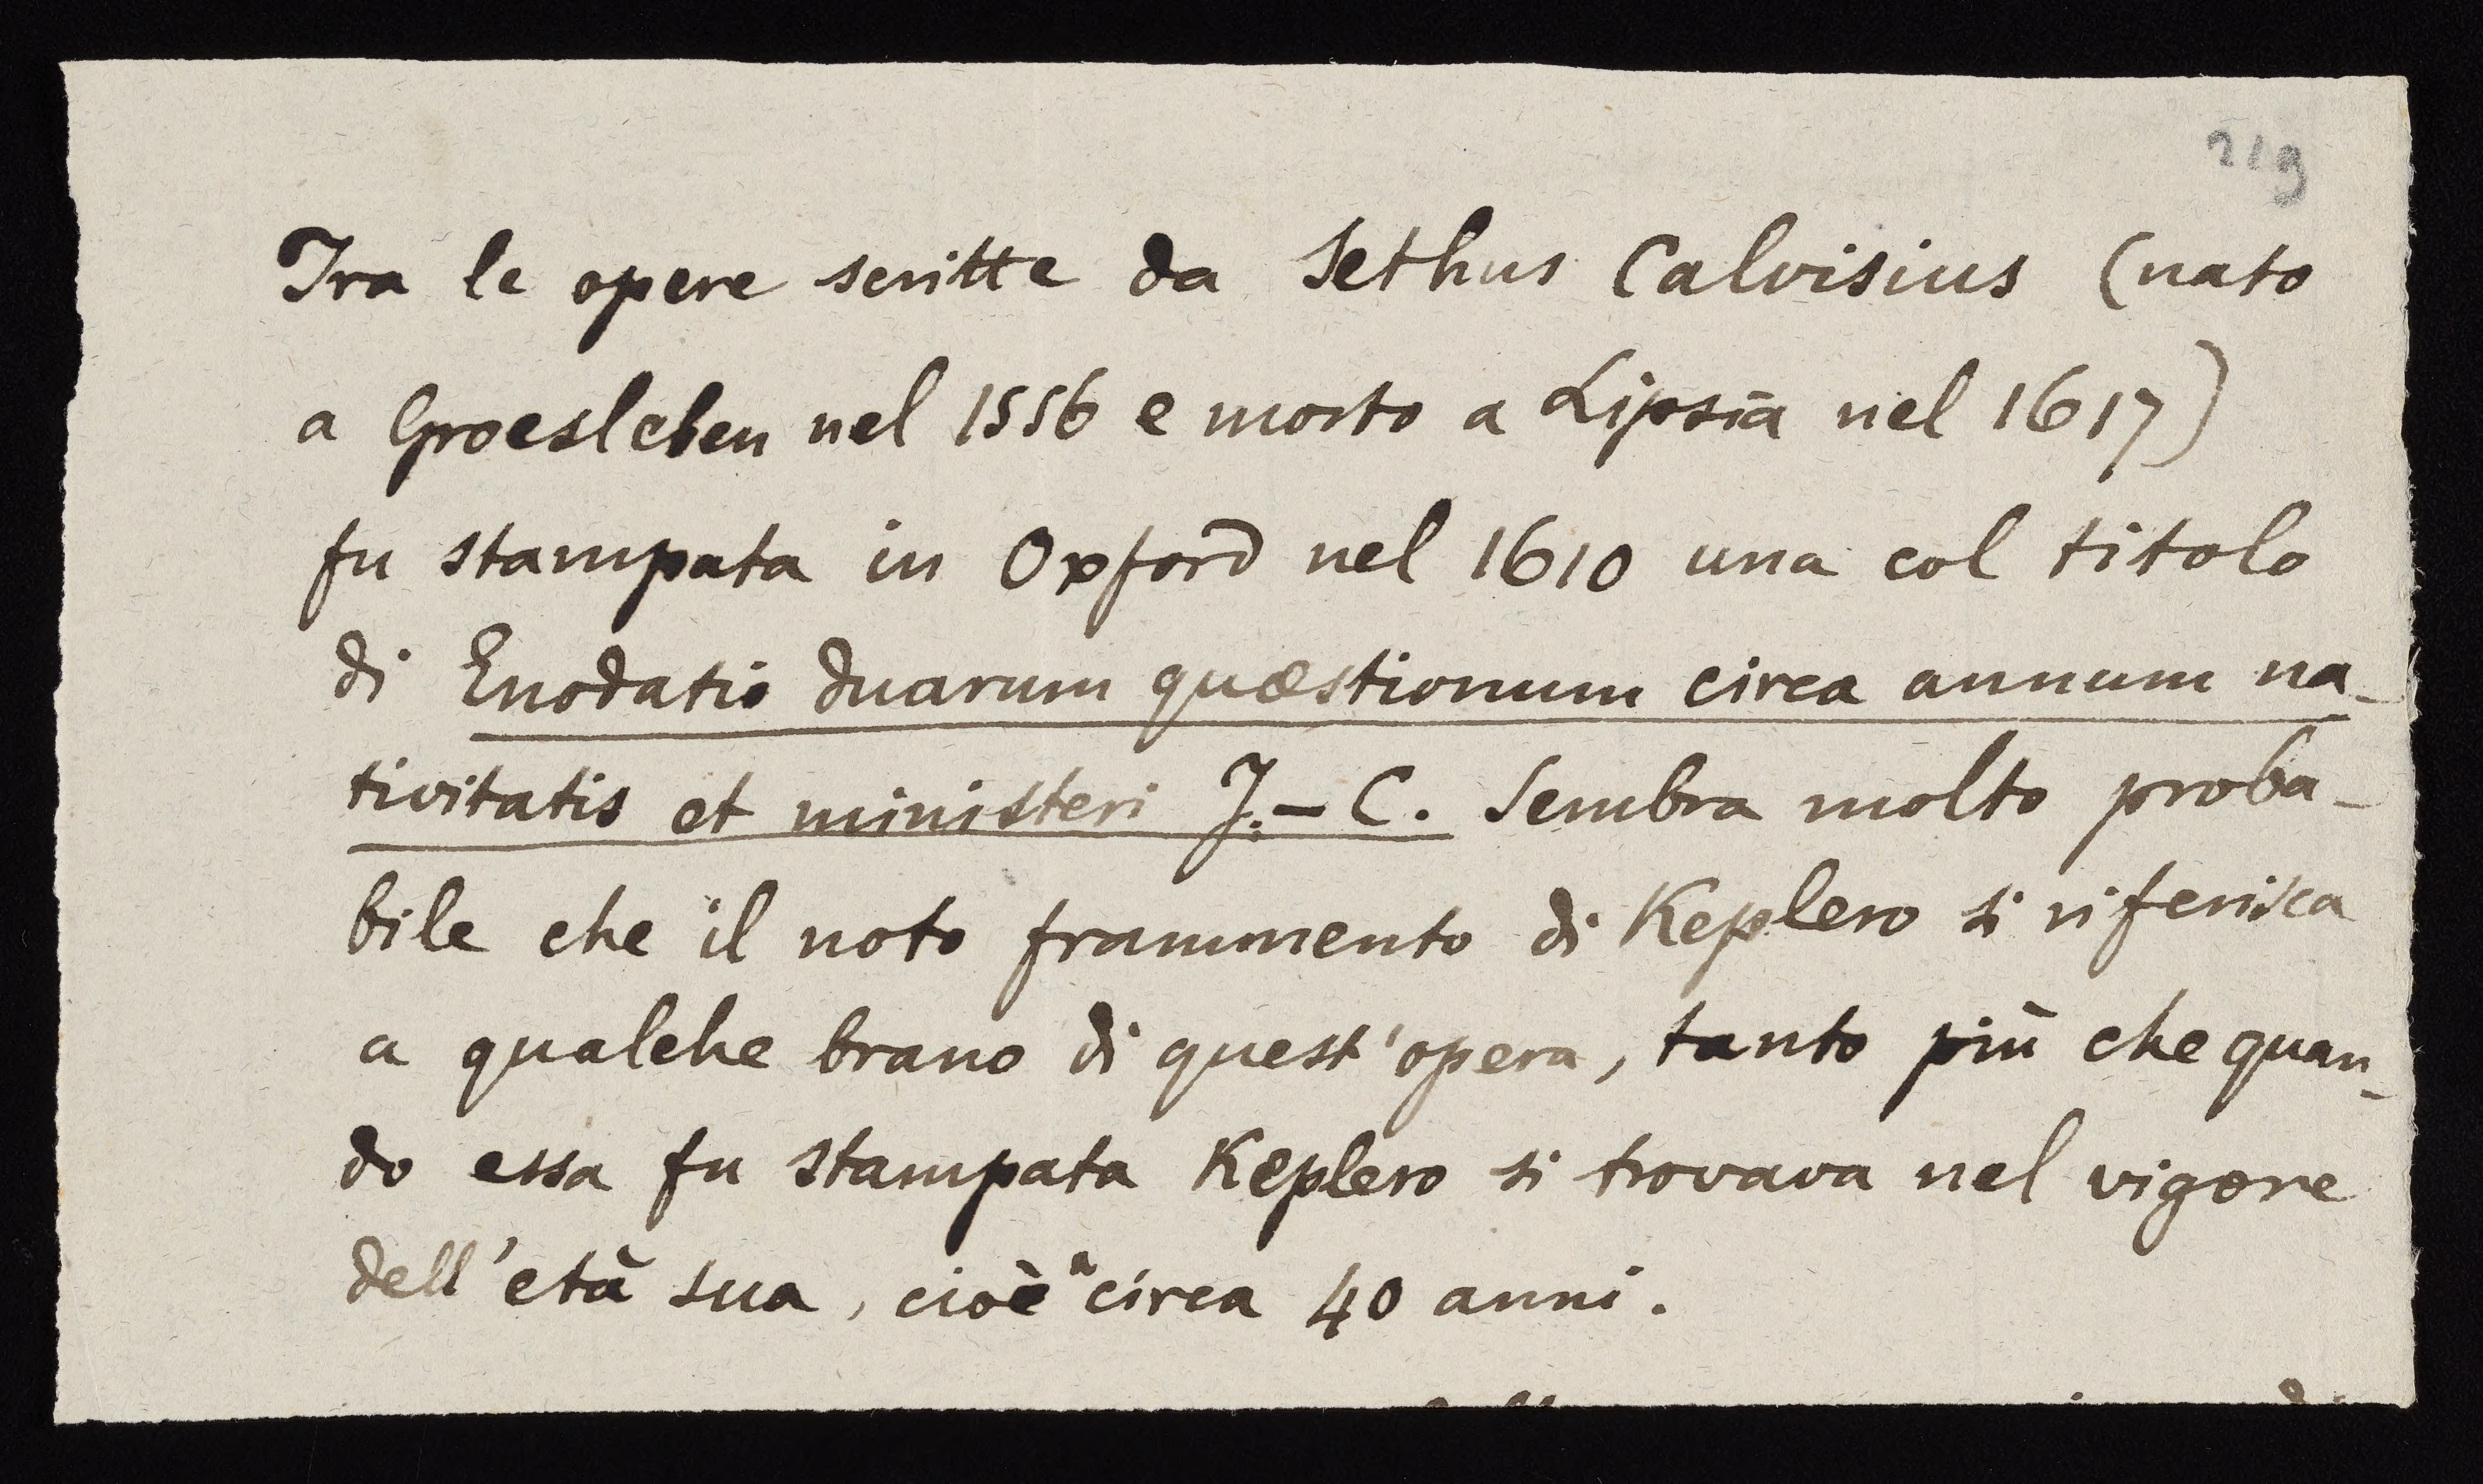 219
Tra le opere scritte da Sethus Calvisius (nato
a Groesleben nel 1556 e morto a Lipsia nel 1617)
fu stampata in Oxford nel 1610 una col titolo
di Enodatio duarum quæstionum circa annum na-
tivitatis et ministeri J.-C. Sembra molto proba-
bile che il noto frammento di Keplero si riferisca
a qualche brano di quest'opera, tanto più che quan-
do essa fu stampata Keplero si trovava nel vigore
dell'età sua, cioè a circa 40 anni.